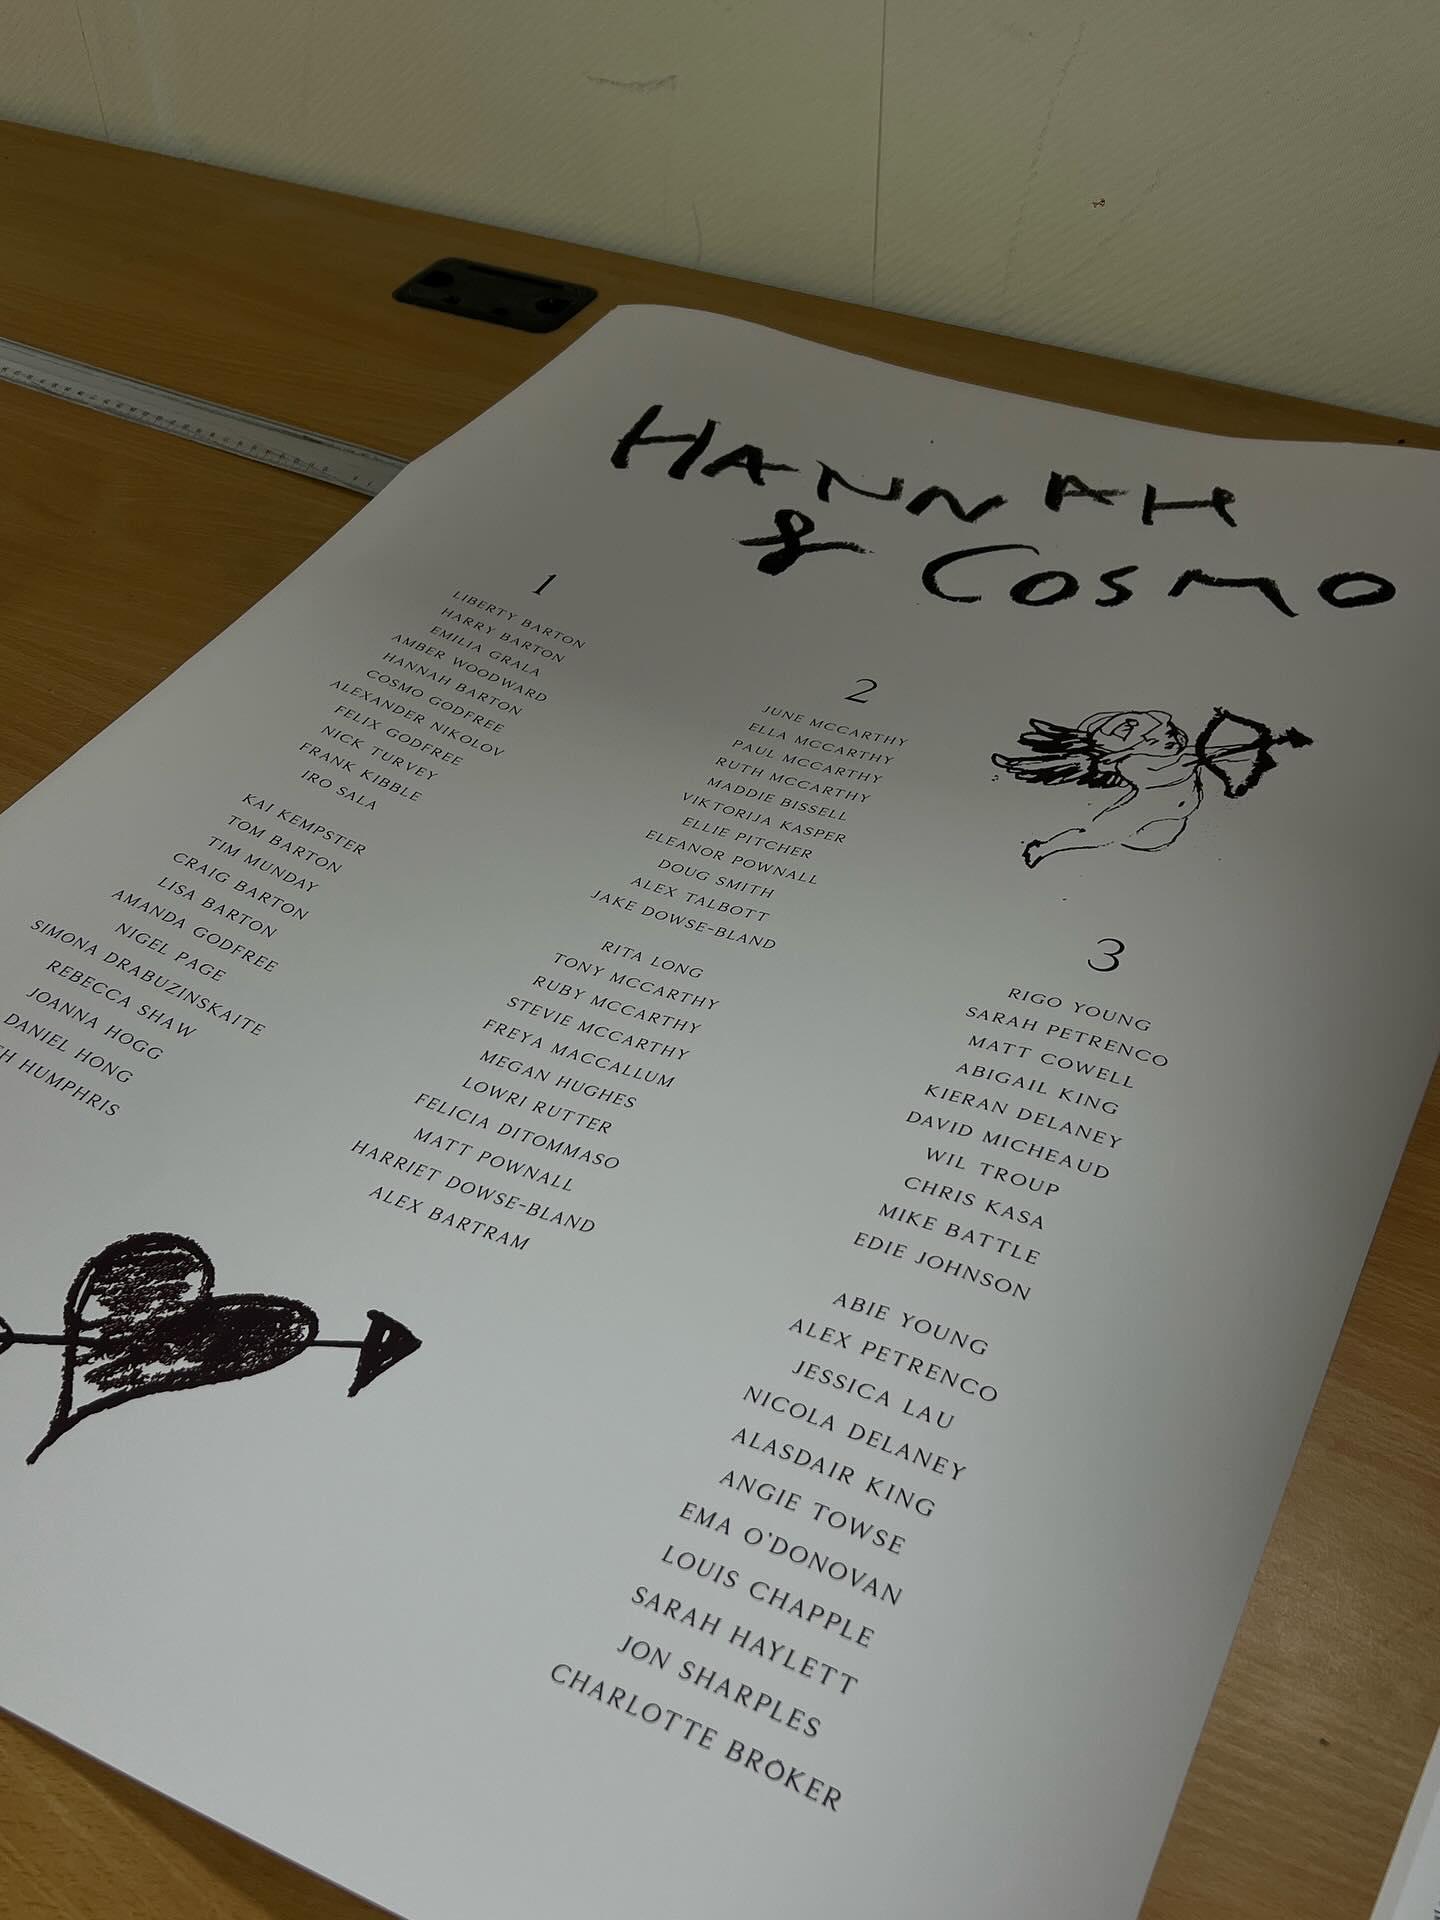 HANNAH
& COSMO
1
LIBERTY BARTON
HARRY BARTON
EMILIA GRALA
AMBER WOODWARD
HANNAH BARTON
COSMO GODFREE
ALEXANDER NIKOLOV
FELIX GODFREE
NICK TURVEY
FRANK KIBBLE
IRO SALA
KAI KEMPSTER
TOM BARTON
TIM MUNDAY
CRAIG BARTON
LISA BARTON
AMANDA GODFREE
NIGEL PAGE
SIMONA DRABUZINSKAITE
REBECCA SHAW
JOANNA HOGG
DANIEL HONG
HUMPHRIS
2
JUNE MCCARTHY
ELLA MCCARTHY
PAUL MCCARTHY
RUTH MCCARTHY
MADDIE BISSELL
VIKTORIJA KASPER
ELLIE PITCHER
ELEANOR POWNALL
DOUG SMITH
ALEX TALBOTT
JAKE DOWSE-BLAND
RITA LONG
TONY MCCARTHY
RUBY MCCARTHY
STEVIE MCCARTHY
FREYA MACCALLUM
MEGAN HUGHES
LOWRI RUTTER
FELICIA DITOMMASO
MATT POWNALL
HARRIET DOWSE-BLAND
ALEX BARTRAM
3
RIGO YOUNG
SARAH PETRENCO
MATT COWELL
ABIGAIL KING
KIERAN DELANEY
DAVID MICHEAUD
WIL TROUP
CHRIS KASA
MIKE BATTLE
EDIE JOHNSON
ABIE YOUNG
ALEX PETRENCO
JESSICA LAU
NICOLA DELANEY
ALASDAIR KING
ANGIE TOWSE
EMA O'DONOVAN
LOUIS CHAPPLE
SARAH HAYLETT
JON SHARPLES
CHARLOTTE BRÖKER